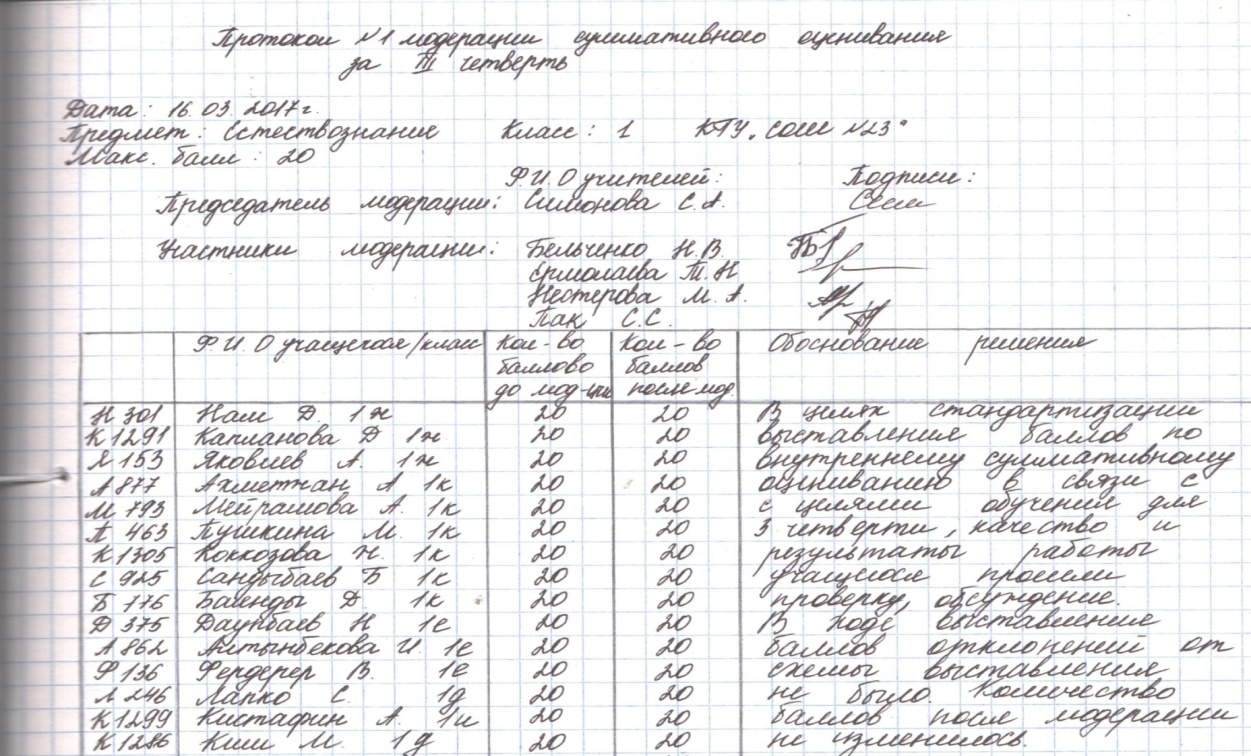 Протокол №1 модерации суммативного оценивания
за III четверть
Дата: 16.03.2017г.
Предмет: Естествознание Класс: 1 КГУ "СОШ №23"
Макс. балл: 20
Ф.И.О учителей: Подписи:
Председатель модерации: Симонова С.А.
Участники модерации: Бельченко Н.В.
Ермолаева Т.Н
Нестерова М.А.
Пак С.С.
Ф.И.О учащегося/класс Кол-во Кол-во Обоснование решения
баллово баллов
до мод-ции после мод.
Н 301 Нам Д. 1ж 20 20 В целях стандартизации
К 1291 Капланова Д 1ж 20 20 выставления баллов по
Я 153 Яковлев А. 1ж 20 20 внутреннему суммативному
А 877 Ахметжан А 1к 20 20 оцениванию в связи с
М 793 Мейрамова А. 1к 20 20 с целями обучения для
П 463 Пушкина М. 1к 20 20 3 четверти, качество и
К 1305 Коккозова Н. 1к 20 20 результаты работы
С 925 Сандыбаев Б 1к 20 20 учащегося прошли
Б 776 Баенды Д. 1к 20 20 проверку, обсуждение.
Д 375 Даупбаев Н 1е 20 20 В ходе выставления
А 862 Алтынбекова И. 1е 20 20 баллов отклонений от
Ф 136 Фердерер В. 1е 20 20 схемы выставления
Л 246 Лапко С. 1д 20 20 не было. Количество
К 1299 Кистафин А. 1и 20 20 баллов после модерации
К 1286 Ким М. 1д 20 20 не изменилось.